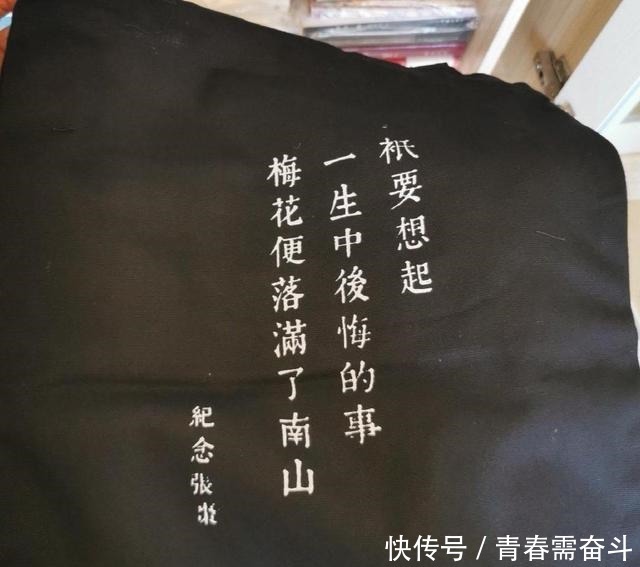 衹要想起
一生中後悔的事
梅花便落滿了南山
紀念張
快传号 / 青春需奋斗